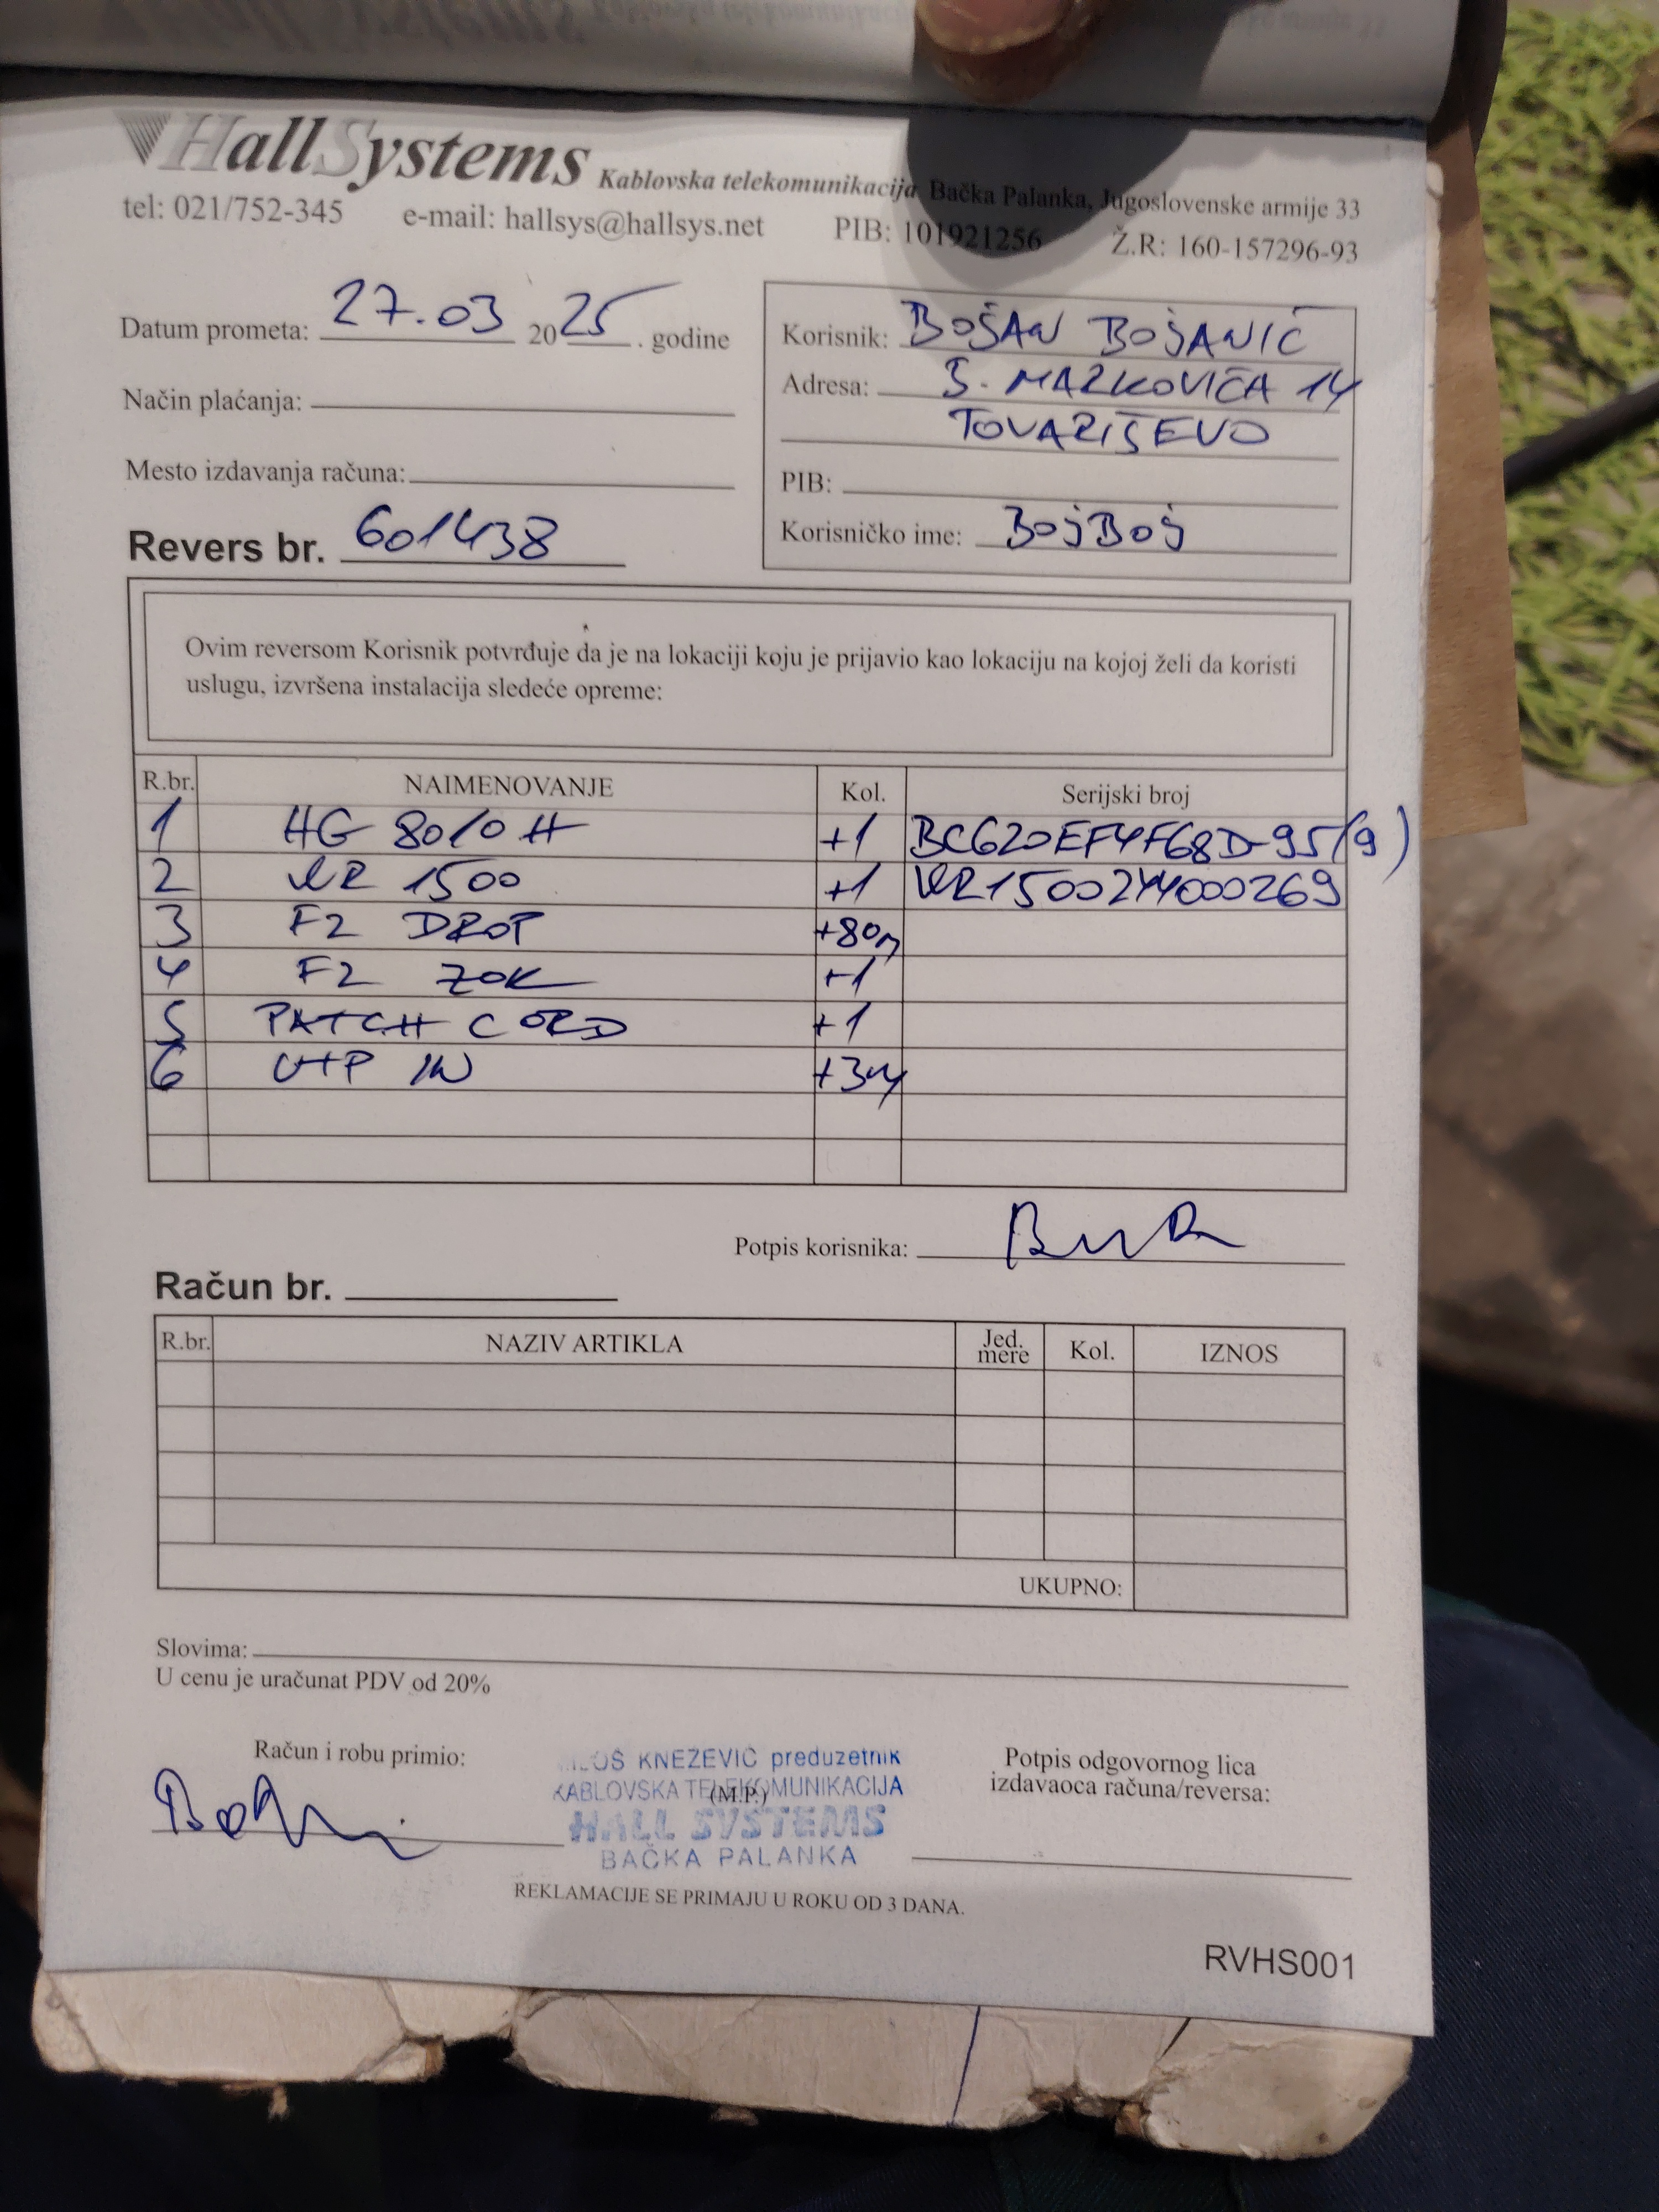 HallSystems Kablovska telekomunikacija Bačka Palanka, Jugoslovenske armije 33
tel: 021/752-345 e-mail: hallsys@hallsys.net PIB: 101921256 Ž.R: 160-157296-93
Datum prometa: 27.03 2025. godine
Način plaćanja:
Mesto izdavanja računa:
Revers br. 601438
Korisnik: BOJAN BOJANIĆ
Adresa: S. MARKOVIĆA 14
TOVARIŠEVO
PIB:
Korisničko ime: BOJBOJ
Ovim reversom Korisnik potvrđuje da je na lokaciji koju je prijavio kao lokaciju na kojoj želi da koristi
uslugu, izvršena instalacija sledeće opreme:
R.br. NAIMENOVANJE Kol. Serijski broj
1 HG 8010H +1 BC620EF4F68D-95(9)
2 VR 1500 +1 VR1500244000269
3 F2 DROP +80m
4 F2 ZOK +1
5 PATCH CORD +1
6 UTP IN +3m
Potpis korisnika:
Račun br.
R.br. NAZIV ARTIKLA Jed. mere Kol. IZNOS
UKUPNO:
Slovima:
U cenu je uračunat PDV od 20%
Računi i robu primio:
KNEŽEVIĆ preduzetnik
KABLOVSKA TELEKOMUNIKACIJA
(M.P.)
HALL SYSTEMS
BAČKA PALANKA
Potpis odgovornog lica
izdavaoca računa/reversa:
REKLAMACIJE SE PRIMAJU U ROKU OD 3 DANA.
RVHS001